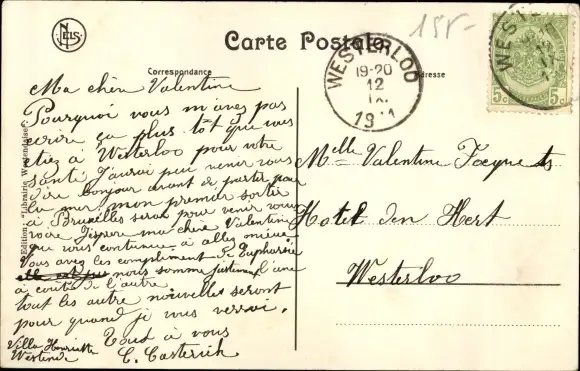 NELS
Carte Postale
15F-
Correspondance
Adresse
WESTERLOO
19-20
12
IX
19 1
WESTERLOO
5c 5c
Edition "Librairie Westendaise"
Ma chère Valentine
Pourquoi vous m'avez pas
ecrire ça plus tôt que vous
etiez à Westerloo pour votre
santé J'aurai peu venir vous
dire bonjour avant de partir pour
la mer, mon premier sortie
à Bruxelles serai pour venir vous
voire J'espère ma chère Valentine
que vous continue à allez mieux
Vous avez les compliment de Euphrasie
elle est nous somme justement l'une
à coutés de l'autre.
tout les autre nouvelles seront
pour quand je vous verrai.
Tout à vous
C. Casterich
Villa Henriette
Westende
Melle Valentine
Hotel den Hert
Westerloo